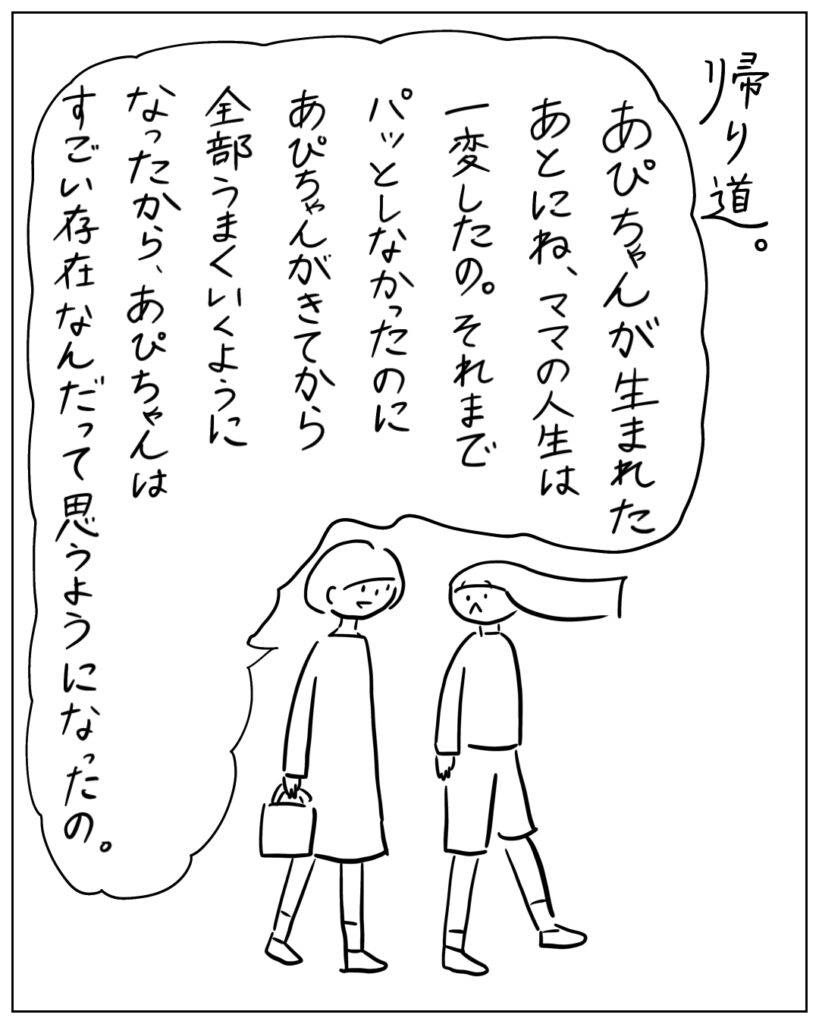 帰り道。
あぴちゃんが生まれた
あとにね、ママの人生は
一変したの。それまで
パッとしなかったのに
あぴちゃんがきてから
全部うまくいくように
なったから、あぴちゃんは
すごい存在なんだって思うようになったの。